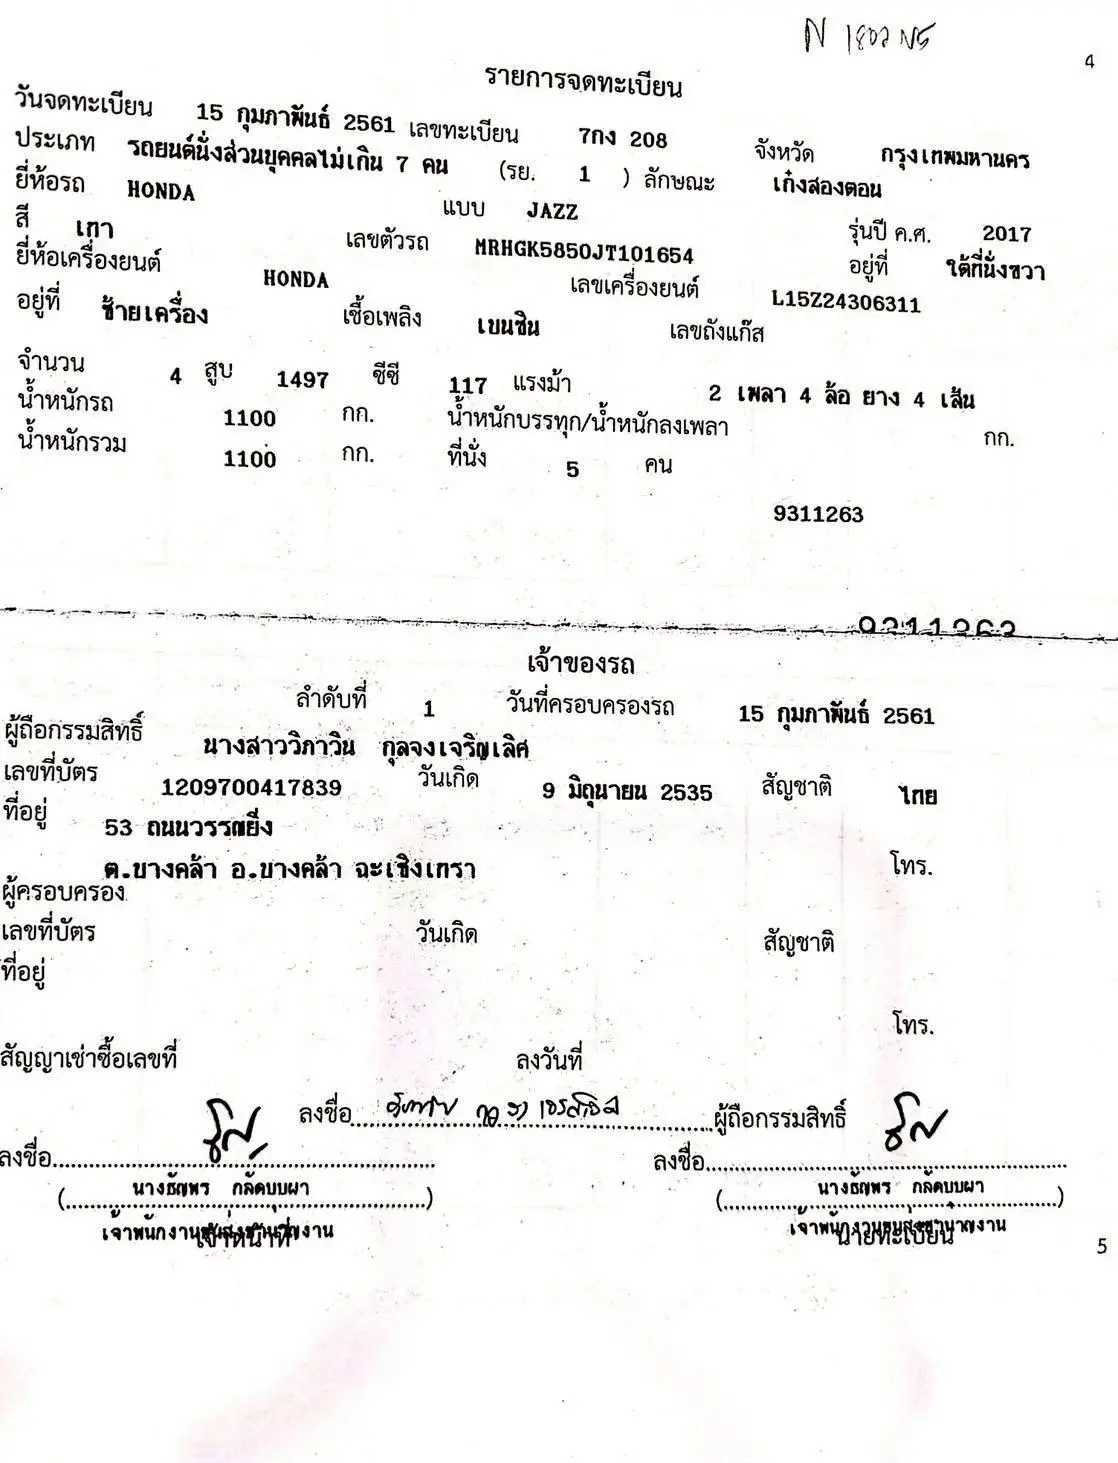 4
รายการจดทะเบียน
วันจดทะเบียน 15 กุมภาพันธ์ 2561 เลขทะเบียน 7กง 208 จังหวัด กรุงเทพมหานคร
ประเภท รถยนต์นั่งส่วนบุคคลไม่เกิน 7 คน (รย. 1 ) ลักษณะ เก๋งสองตอน
ยี่ห้อรถ HONDA แบบ JAZZ รุ่นปี ค.ศ. 2017
สี เทา เลขตัวรถ MRHGK5850JT101654 อยู่ที่ ใต้ที่นั่งขวา
ยี่ห้อเครื่องยนต์ HONDA เลขเครื่องยนต์ L15Z24306311
อยู่ที่ ซ้ายเครื่อง เชื้อเพลิง เบนซิน เลขถังแก๊ส
จำนวน 4 สูบ 1497 ซีซี 117 แรงม้า 2 เพลา 4 ล้อ ยาง 4 เส้น
น้ำหนักรถ 1100 กก. น้ำหนักบรรทุก/น้ำหนักลงเพลา กก.
น้ำหนักรวม 1100 กก. ที่นั่ง 5 คน
9311263
9311263
เจ้าของรถ
ลำดับที่ 1 วันที่ครอบครองรถ 15 กุมภาพันธ์ 2561
ผู้ถือกรรมสิทธิ์ นางสาววิภาวิน กุลจงเจริญเลิศ
เลขที่บัตร 1209700417839 วันเกิด 9 มิถุนายน 2535 สัญชาติ ไทย
ที่อยู่ 53 ถนนวรรณยิ่ง
ต.บางคล้า อ.บางคล้า ฉะเชิงเทรา โทร.
ผู้ครอบครอง
เลขที่บัตร วันเกิด สัญชาติ
ที่อยู่
โทร.
สัญญาเช่าซื้อเลขที่ ลงวันที่
ลงชื่อ ผู้ถือกรรมสิทธิ์
ลงชื่อ ลงชื่อ
(นางธัญพร กลัดบุบผา) (นางธัญพร กลัดบุบผา)
เจ้าพนักงานขนส่งชำนาญงาน เจ้าพนักงานขนส่งชำนาญงาน
เจ้าหน้าที่ นายทะเบียน
5